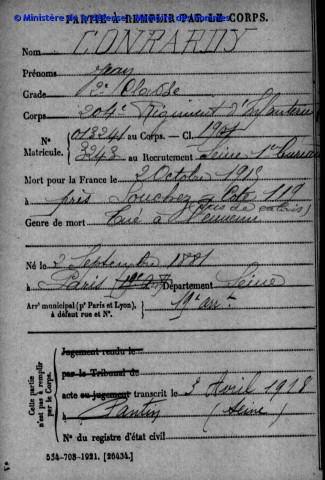 © Ministère de la défense - Mémoire des hommes
PARTIE À REMPLIR PAR LE CORPS.
Nom CONRARDY
Prénoms Jean
Grade 2e Classe
Corps 204e Régiment d'Infanterie
N° 013241 au Corps. — Cl. 1901
Matricule. 3243 au Recrutement Seine 1er Bureau
Mort pour la France le 2 Octobre 1915
à près Souchez Cote 119
(Pas de Calais)
Genre de mort Tué à l'ennemi
Né le 3 Septembre 1881
à Paris (19e art) Département Seine
Arrt municipal (pr Paris et Lyon), à défaut rue et N°. 19e arrt
Cette partie n'est pas à remplir par le Corps.
Jugement rendu le
par le Tribunal de
acte ou jugement transcrit le 3 Avril 1918
à Pantin (Seine)
N° du registre d'état civil
534-708-1921. [26434.]